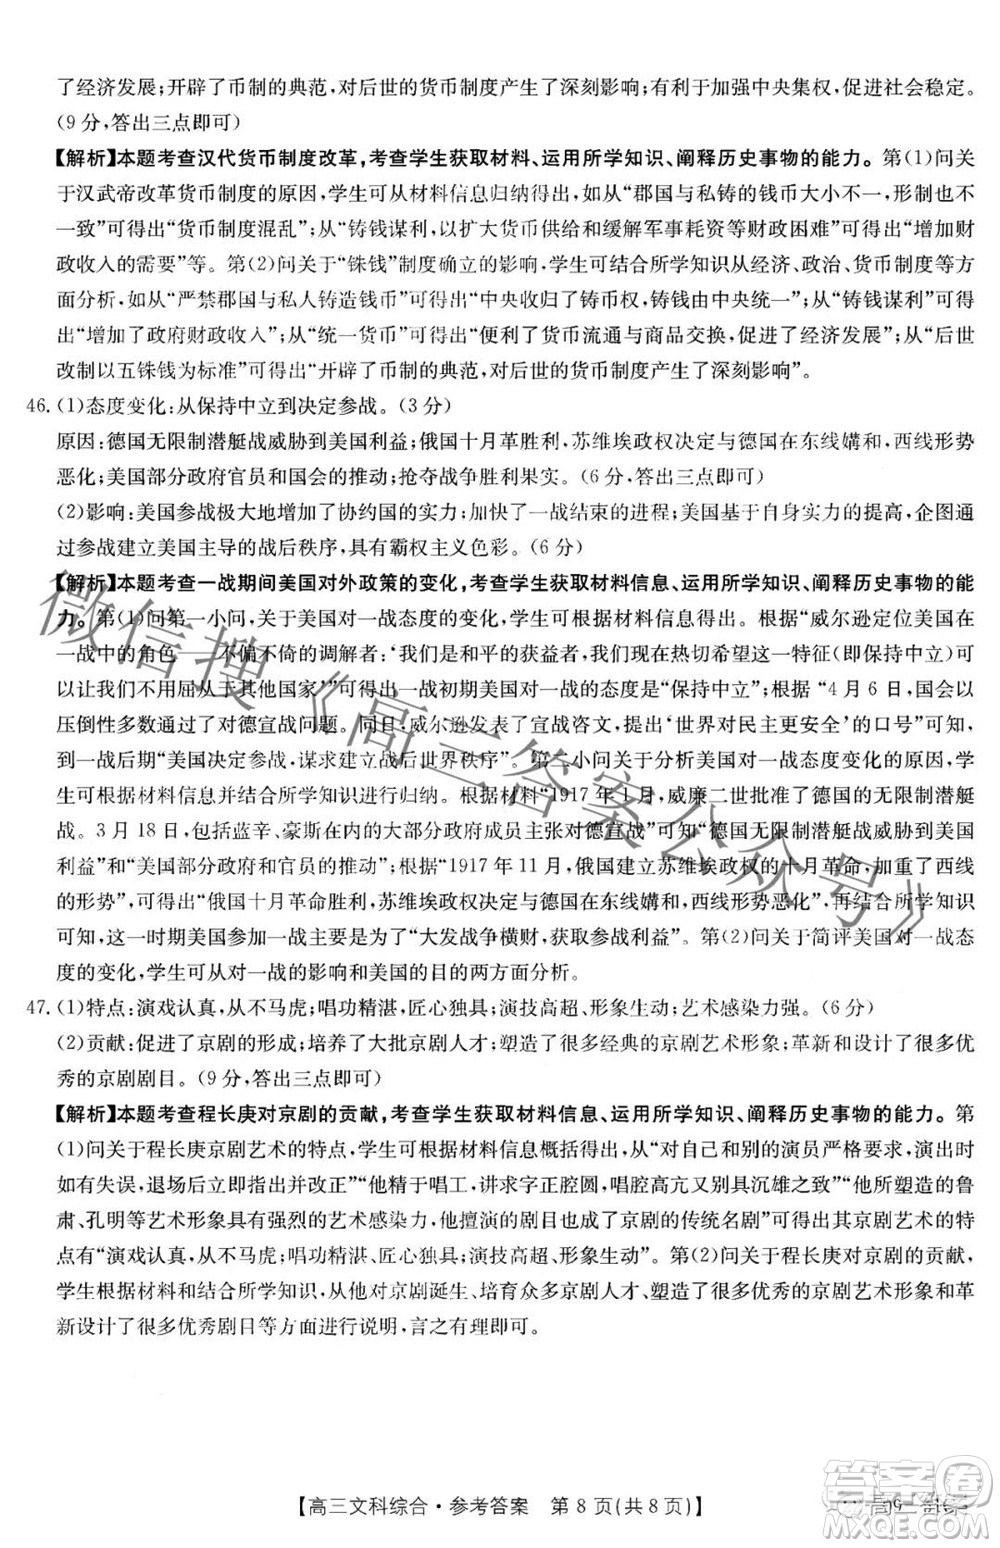 了经济发展;开辟了币制的典范,对后世的货币制度产生了深刻影响;有利于加强中央集权,促进社会稳定。
(9分,答出三点即可)
【解析】本题考查汉代货币制度改革,考查学生获取材料、运用所学知识、阐释历史事物的能力。第(1)问关
于汉武帝改革货币制度的原因,学生可从材料信息归纳得出,如从“郡国与私铸的钱币大小不一,形制也不
一致”可得出“货币制度混乱”;从“铸钱谋利,以扩大货币供给和缓解军事耗资等财政困难”可得出“增加财
政收入的需要”等。第(2)问关于“铢钱”制度确立的影响,学生可结合所学知识从经济、政治、货币制度等方
面分析,如从“严禁郡国与私人铸造钱币”可得出“中央收归了铸币权,铸钱由中央统一”;从“铸钱谋利”可得
出“增加了政府财政收入”;从“统一货币”可得出“便利了货币流通与商品交换,促进了经济发展”;从“后世
改制以五铢钱为标准”可得出“开辟了币制的典范,对后世的货币制度产生了深刻影响”。
46.(1)态度变化:从保持中立到决定参战。(3分)
原因:德国无限制潜艇战威胁到美国利益;俄国十月革胜利,苏维埃政权决定与德国在东线媾和,西线形势
恶化;美国部分政府官员和国会的推动;抢夺战争胜利果实。(6分,答出三点即可)
(2)影响:美国参战极大地增加了协约国的实力;加快了一战结束的进程;美国基于自身实力的提高,企图通
过参战建立美国主导的战后秩序,具有霸权主义色彩。(6分)
【解析】本题考查一战期间美国对外政策的变化,考查学生获取材料信息、运用所学知识、阐释历史事物的能
力。第(1)问第一小问,关于美国对一战态度的变化,学生可根据材料信息分析得出,根据“威尔逊定位美国在
一战中的角色——不偏不倚的调解者:‘我们是和平的获益者,因此我们现在热切希望这一特征(即保持中立)可
用来阻止我们不用屈从于其他国家’”可得出一战初期美国对一战的态度是“保持中立”;根据“4月6日,国会以
压倒性多数通过了对德宣战问题。同日,威尔逊发表了宣战咨文,提出了‘世界对民主更安全’的口号”可知,
到一战后期“美国决定参战,谋求建立战后世界秩序”。第二小问关于分析美国对一战态度变化的原因,学
生可根据材料信息并结合所学知识进行归纳。根据材料“1917年1月,威廉二世批准了德国的无限制潜艇
战。3月18日,包括蓝辛、豪斯在内的大部分政府成员主张对德宣战”可知“德国无限制潜艇战威胁到美国
利益”和“美国部分政府和官员的推动”;根据“1917年11月,俄国建立苏维埃政权的十月革命,加重了西线
的形势”,可得出“俄国十月革命胜利,苏维埃政权决定与德国在东线媾和,西线形势恶化”,再结合所学知识
可知,这一时期美国参加一战具有“大发战争横财,获取参战利益”。第(2)问关于简评美国对一战态
度的变化,学生可从对一战的影响和美国的目的两方面分析。
47.(1)特点:演戏认真,从不马虎;唱功精湛,匠心独具;演技高超、形象生动;艺术感染力强。(6分)
(2)贡献:促进了京剧的形成;培养了大批京剧人才;塑造了很多经典的京剧艺术形象;革新和设计了很多优
秀的京剧剧目。(9分,答出三点即可)
【解析】本题考查程长庚对京剧的贡献,考查学生获取材料信息、运用所学知识、阐释历史事物的能力。第
(1)问关于程长庚京剧艺术的特点,学生可根据材料信息概括得出,从“对自己和别的演员严格要求,演出中
如有失误,退场后立即指出并改正”“他精于唱工,讲求字正腔圆,唱腔高亢又别具沉雄之致”“他所塑造的鲁
肃、孔明等艺术形象具有强烈的艺术感染力,他擅演的剧目也成了京剧的传统名剧”可得出程京剧艺术的特
点有“演戏认真,从不马虎;唱功精湛、匠心独具;演技高超、形象生动”。第(2)问关于程长庚对京剧的贡献,
学生可根据材料和所学知识,从对京剧诞生、培育众多京剧人才、塑造了很多优秀的京剧艺术形象和革
新设计了很多优秀剧目等方面进行说明,言之有理即可。
微信搜《高三答案公众号》
【高三文科综合·参考答案 第8页(共8页)】
答案圈
MXQE.COM